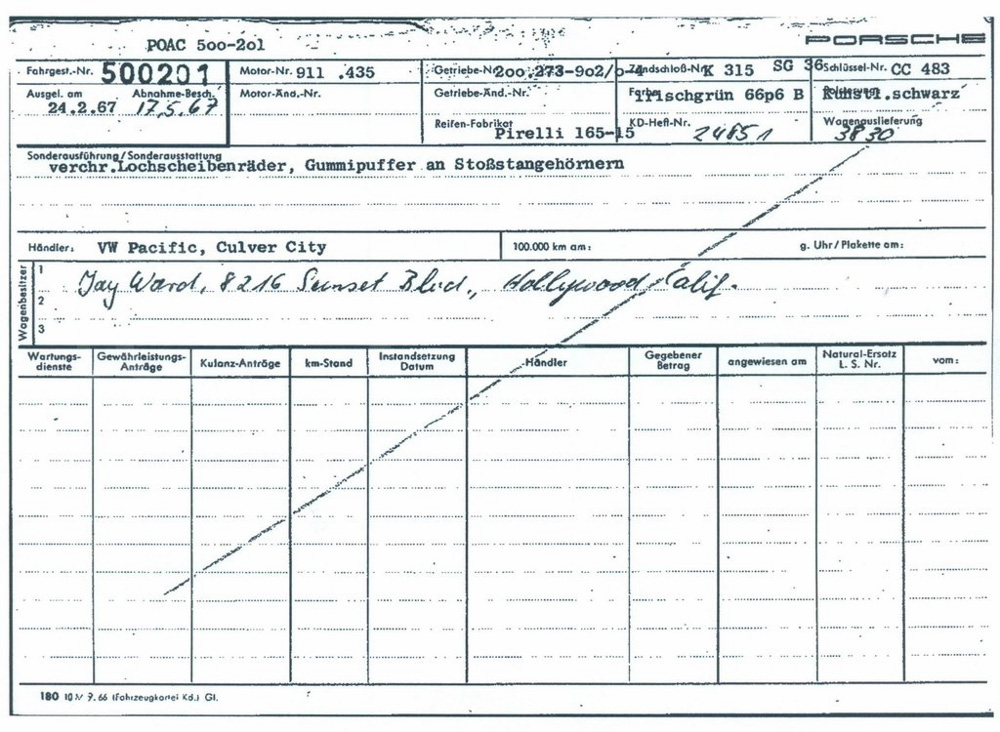 POAC 5oo-2o1
PORSCHE
Fahrgest.-Nr. 500201 Motor-Nr. 911 .435 Getriebe-Nr. 2oo.273-9o2/o-4 Zündschloß-Nr. K 315 SG 36 Schlüssel-Nr. CC 483
Ausgel. am Abnahme-Besch. Motor-Änd.-Nr. Getriebe-Änd.-Nr. Farbe Irischgrün 66p6 B Kunstl.schwarz
24.2.67 17.5.67
Reifen-Fabrikat Pirelli 165-15 KD-Heft-Nr. 24851 Wagenauslieferung 3830
Sonderausführung/Sonderausstattung
verchr.Lochscheibenräder, Gummipuffer an Stoßstangehörnern
Händler: VW Pacific, Culver City 100.000 km am: g. Uhr/Plakette am:
Wagenbesitzer
1
Jay Ward, 8216 Sunset Blvd., Hollywood, Calif.
2
3
Wartungs-dienste Gewährleistungs-Anträge Kulanz-Anträge km-Stand Instandsetzung Datum Händler Gegebener Betrag angewiesen am Natural-Ersatz L. S. Nr. vom:
180 10 M 9.66 (Fahrzeugkartei Kd.) Gl.